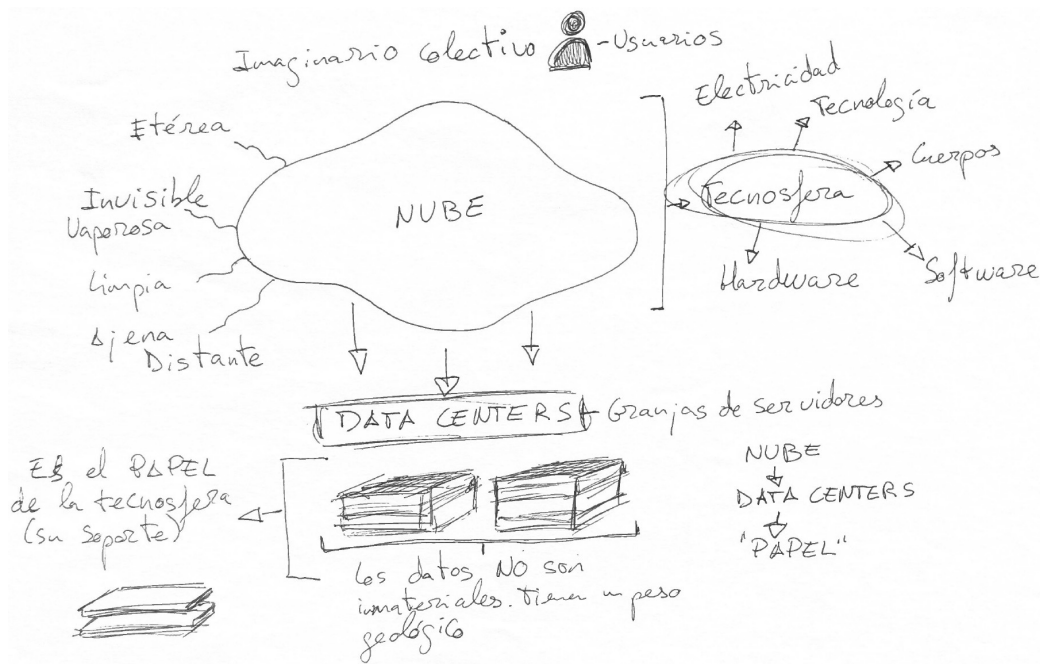 Imaginario Colectivo - Usuarios
Etérea
Invisible
Vaporosa
Limpia
Ajena
Distante
NUBE
Electricidad
Tecnología
Cuerpos
Tecnosfera
Hardware
Software
DATA CENTERS Granjas de servidores
Es el PAPEL
de la tecnosfera
(su soporte)
los datos NO son
inmateriales. Tienen un peso
geológico
NUBE
DATA CENTERS
"PAPEL"